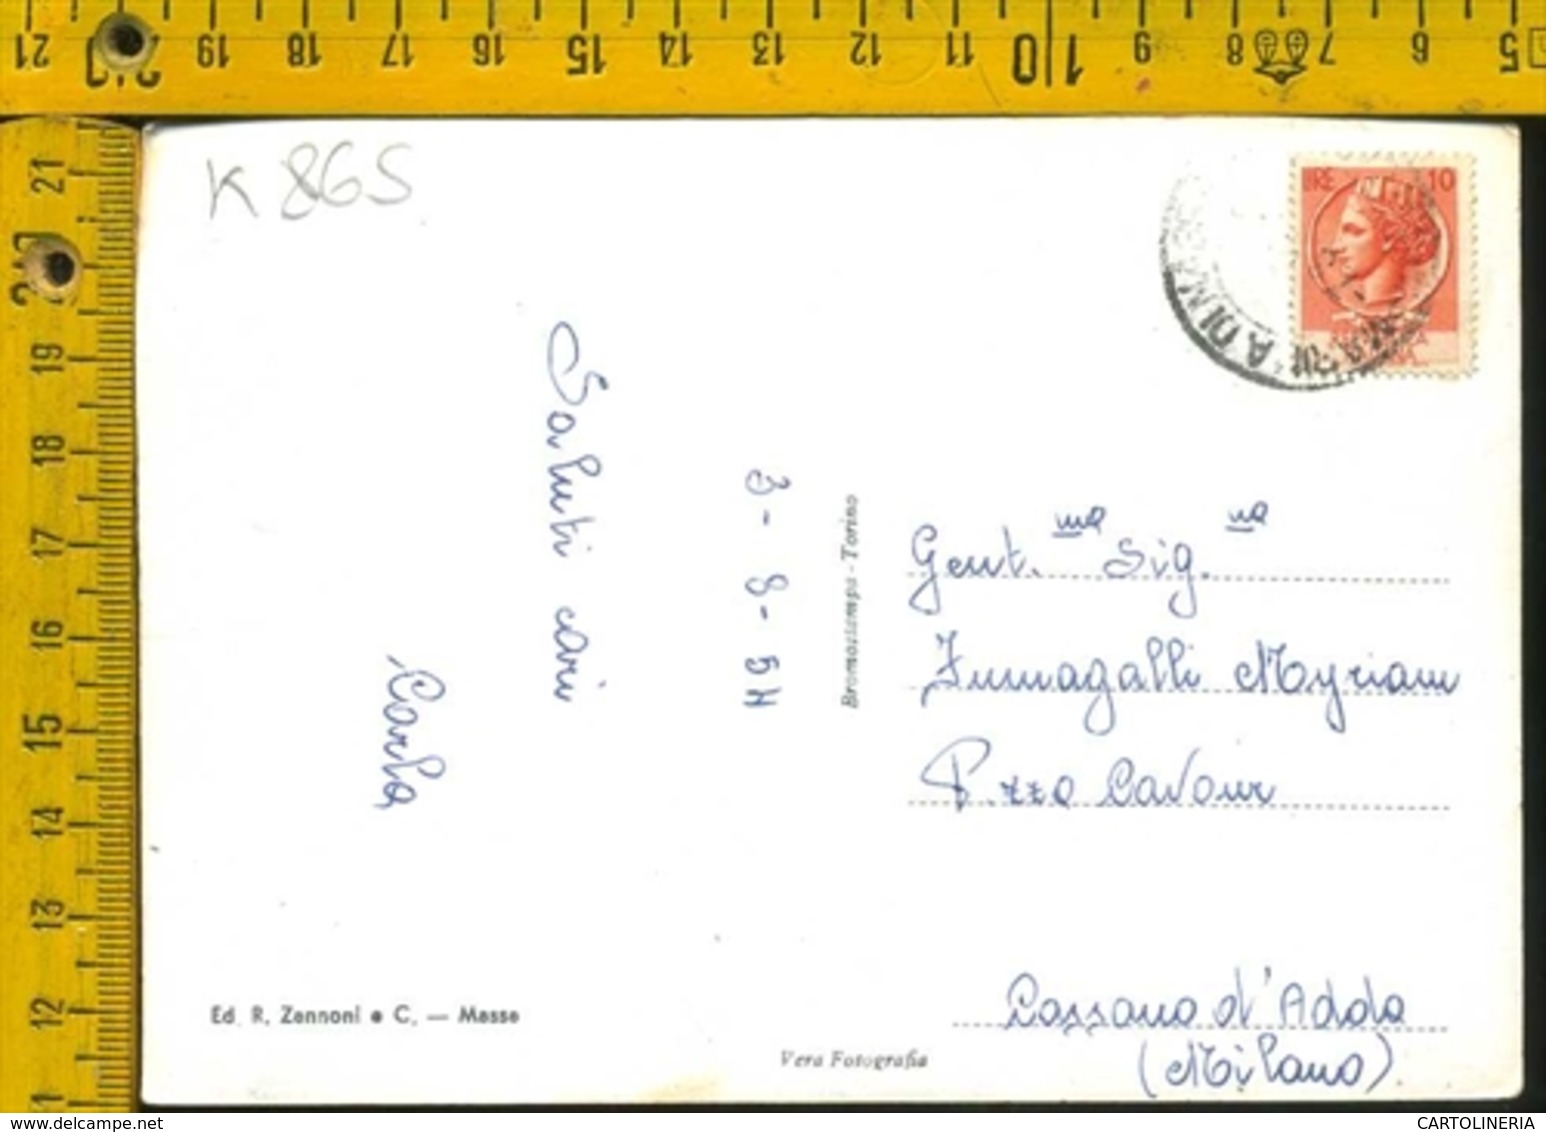 K 865
LIRE 10
Saluti cari
Carla
3 - 8 - 5
Bromostampa - Torino
Gent.ma Sig.na
Fumagalli Myriam
P.zza Cavour
Cassano d'Adda
(Milano)
Ed. R. Zennoni e C. — Massa
Vera Fotografia
www.delcampe.net
CARTOLINERIA
21 20 19 18 17 16 15 14 13 12 11 10 9 8 7 6 5
21
20
19
18
17
16
15
14
13
12